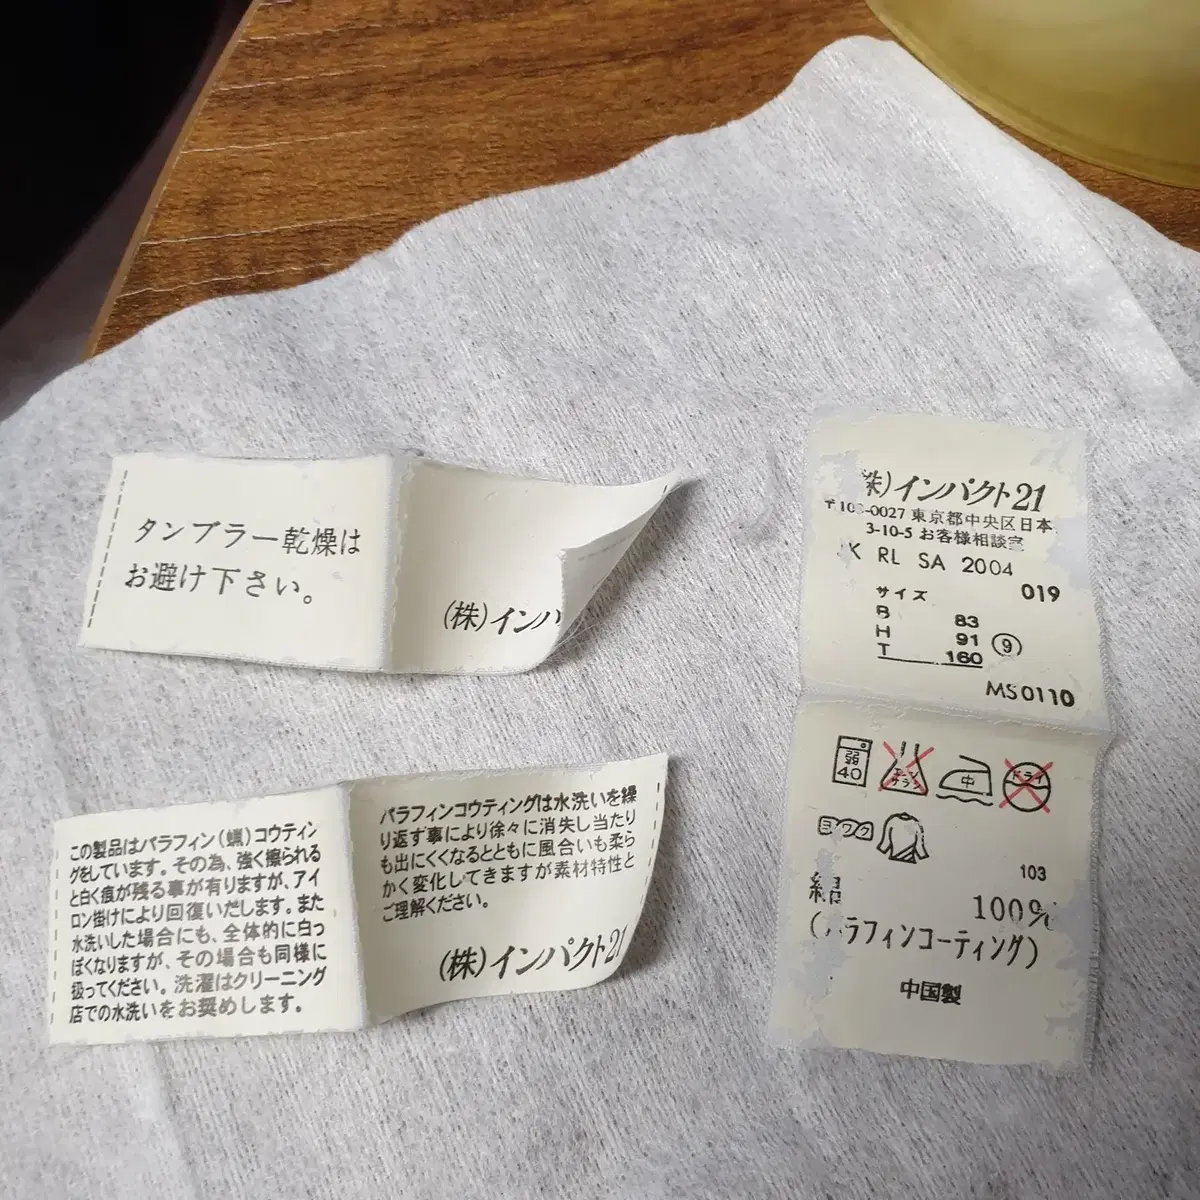 タンブラー乾燥は
お避け下さい。
(株)インパ
この製品はパラフィン(蝋)コウティン
グをしています。その為、強く擦られる
と白く痕が残る事が有りますが、アイ
ロン掛けにより回復いだします。また
水洗いした場合にも、全体的に白っ
ぽくなりますが、その場合も同様に
扱ってください。洗濯はクリーニング
店での水洗いをお奨めします。
パラフィンコウティングは水洗いを繰
り返す事により徐々に消失し当たり
も出にくくなるとともに風合いも柔ら
かく変化してきますが素材特性と
ご理解ください。
(株)インパクト21
株)インパクト21
-0027 東京都中央区日本
3-10-5 お客様相談室
K RL SA 2004
019
サイズ
B 83
H 91 9
T 160
MS0110
弱
40
エンソ
サラシ
中
ドライ
ヨワク
103
100%
ラフィンコーティング)
中国製